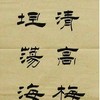 清高梅
坦蕩海